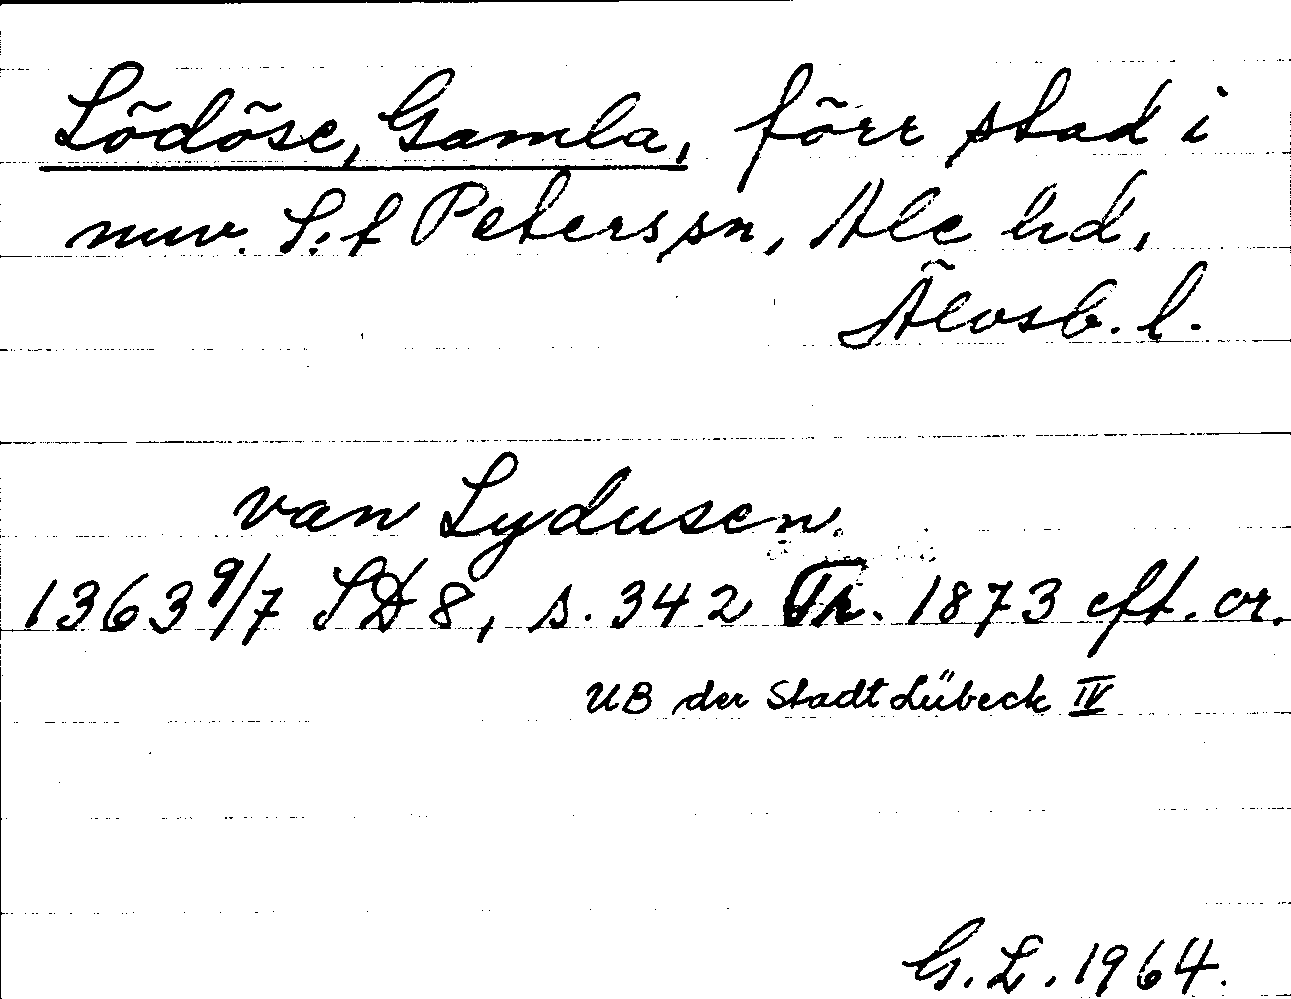 Lödöse, Gamla, förr stad i
nuv. S:t Peters sn, Ale hd,
Älvsb. l.
van Lydusen
1363 9/7 SD 8, s. 342 Tr. 1873 eft. or.
UB der Stadt Lübeck IV
G. L. 1964.